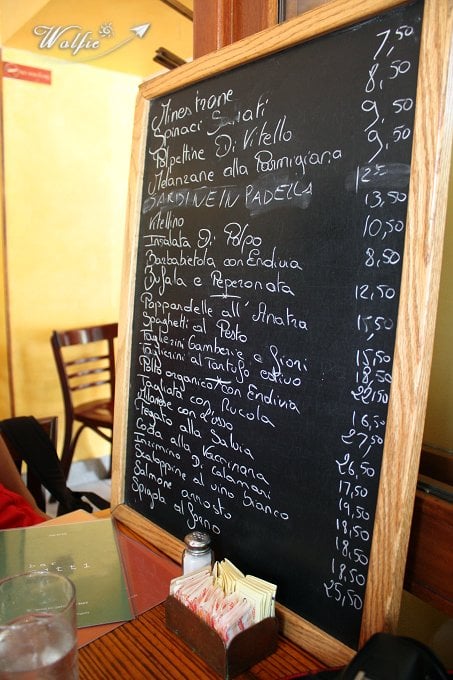 Walfie
Minestrone 7,50
Spinaci Saltati 8,50
Polpettine Di Vitello 9,50
Melanzane alla Parmigiana 9,50
SARDINE IN PADELLA
Vitellino 13,50
Insalata Di Polpo 10,50
Barbabietola con Endivia 8,50
Bufala e Peperonata 12,50
Pappardelle all'Anatra 15,50
Spaghetti al Pesto 15,50
Taglierini Gamberie e fiori 18,50
Taglierini al Tartufo estivo 22,50
Pollo organico con Endivia 16,50
Tagliata con Rucola 27,50
Milanese con Osso 26,50
Fegato alla Salvia 17,50
Coda alla Vaccinara 19,50
Inzimino Di Calamari 18,50
Scaloppine al vino bianco 18,50
Salmone arrosto 18,50
Spigola al forno 25,50
bar